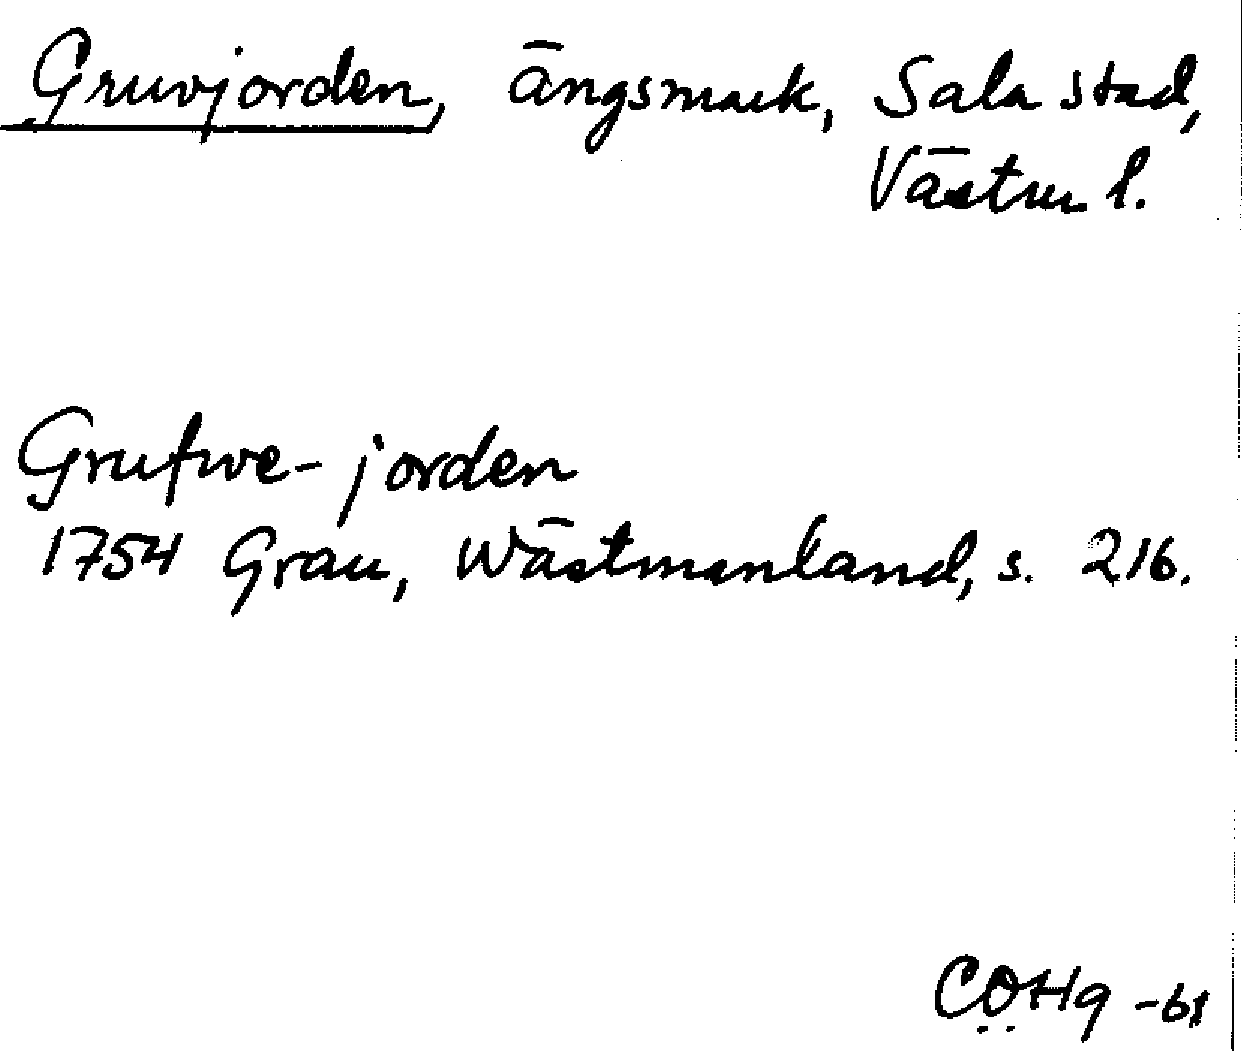 Gruvjorden, ängsmark, Sala stad,
Västm l.
Grufwe-jorden
1754 Grau, Wästmanland, s. 216.
COHg -61